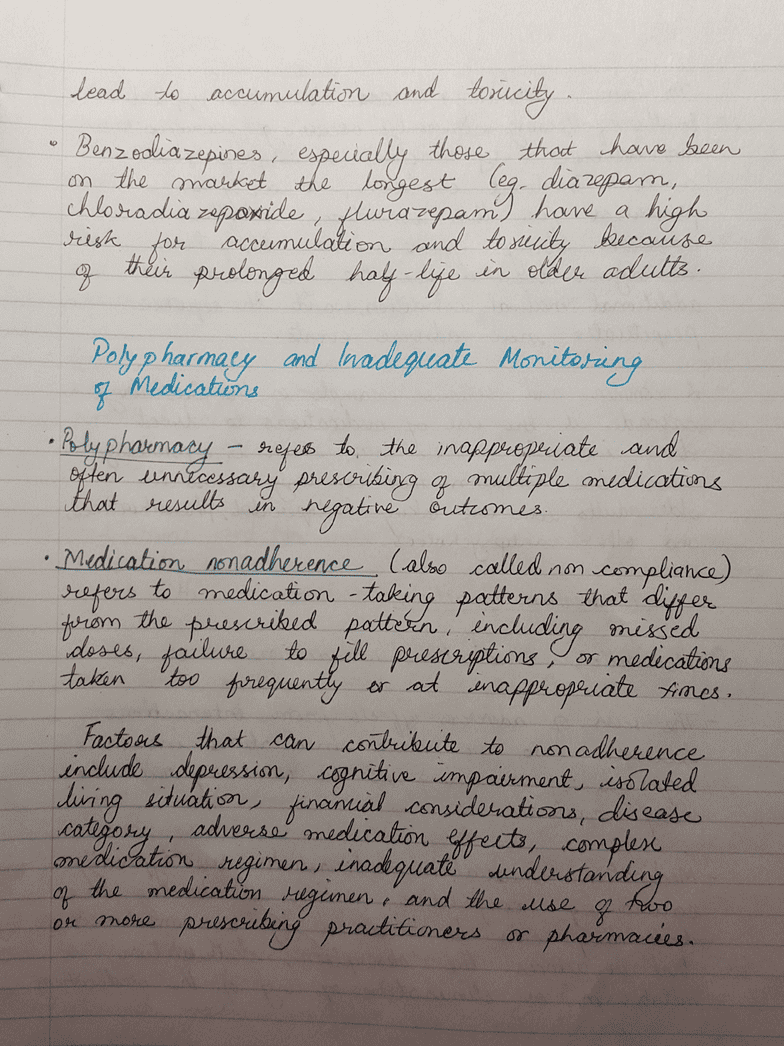 lead to accumulation and toxicity.
• Benzodiazepines, especially those that have been
on the market the longest (eg. diazepam,
chloradiazepoxide, flurazepam) have a high
risk for accumulation and toxicity because
of their prolonged half-life in older adults.
Polypharmacy and Inadequate Monitoring
of Medications
• Polypharmacy – refers to, the inappropriate and
often unnecessary prescribing of multiple medications
that results in negative outcomes.
• Medication nonadherence (also called non compliance)
refers to medication-taking patterns that differ
from the prescribed pattern, including missed
doses, failure to fill prescriptions, or medications
taken too frequently or at inappropriate times.
Factors that can contribute to nonadherence
include depression, cognitive impairment, isolated
living situation, financial considerations, disease
category, adverse medication effects, complex
medication regimen, inadequate understanding
of the medication regimen, and the use of two
or more prescribing practitioners or pharmacies.